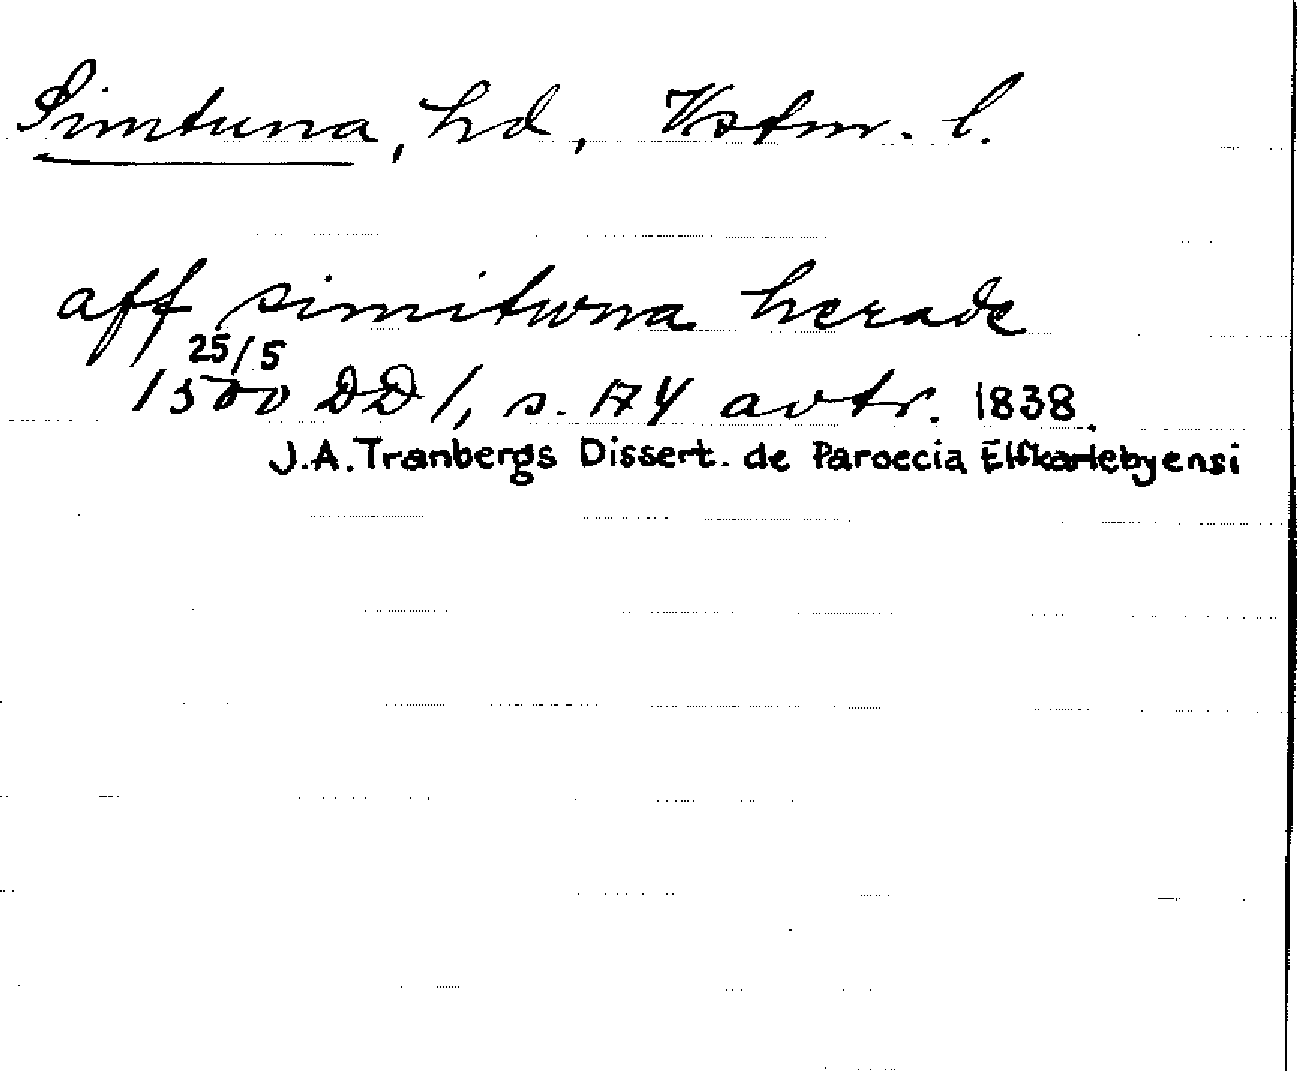 Simtuna, hd, Vstm. l.
aff simitwna herade
25/5
1500 DD 1, s. 174 avtr. 1838.
J.A. Tranbergs Dissert. de Paroecia Elfkarlebyensi